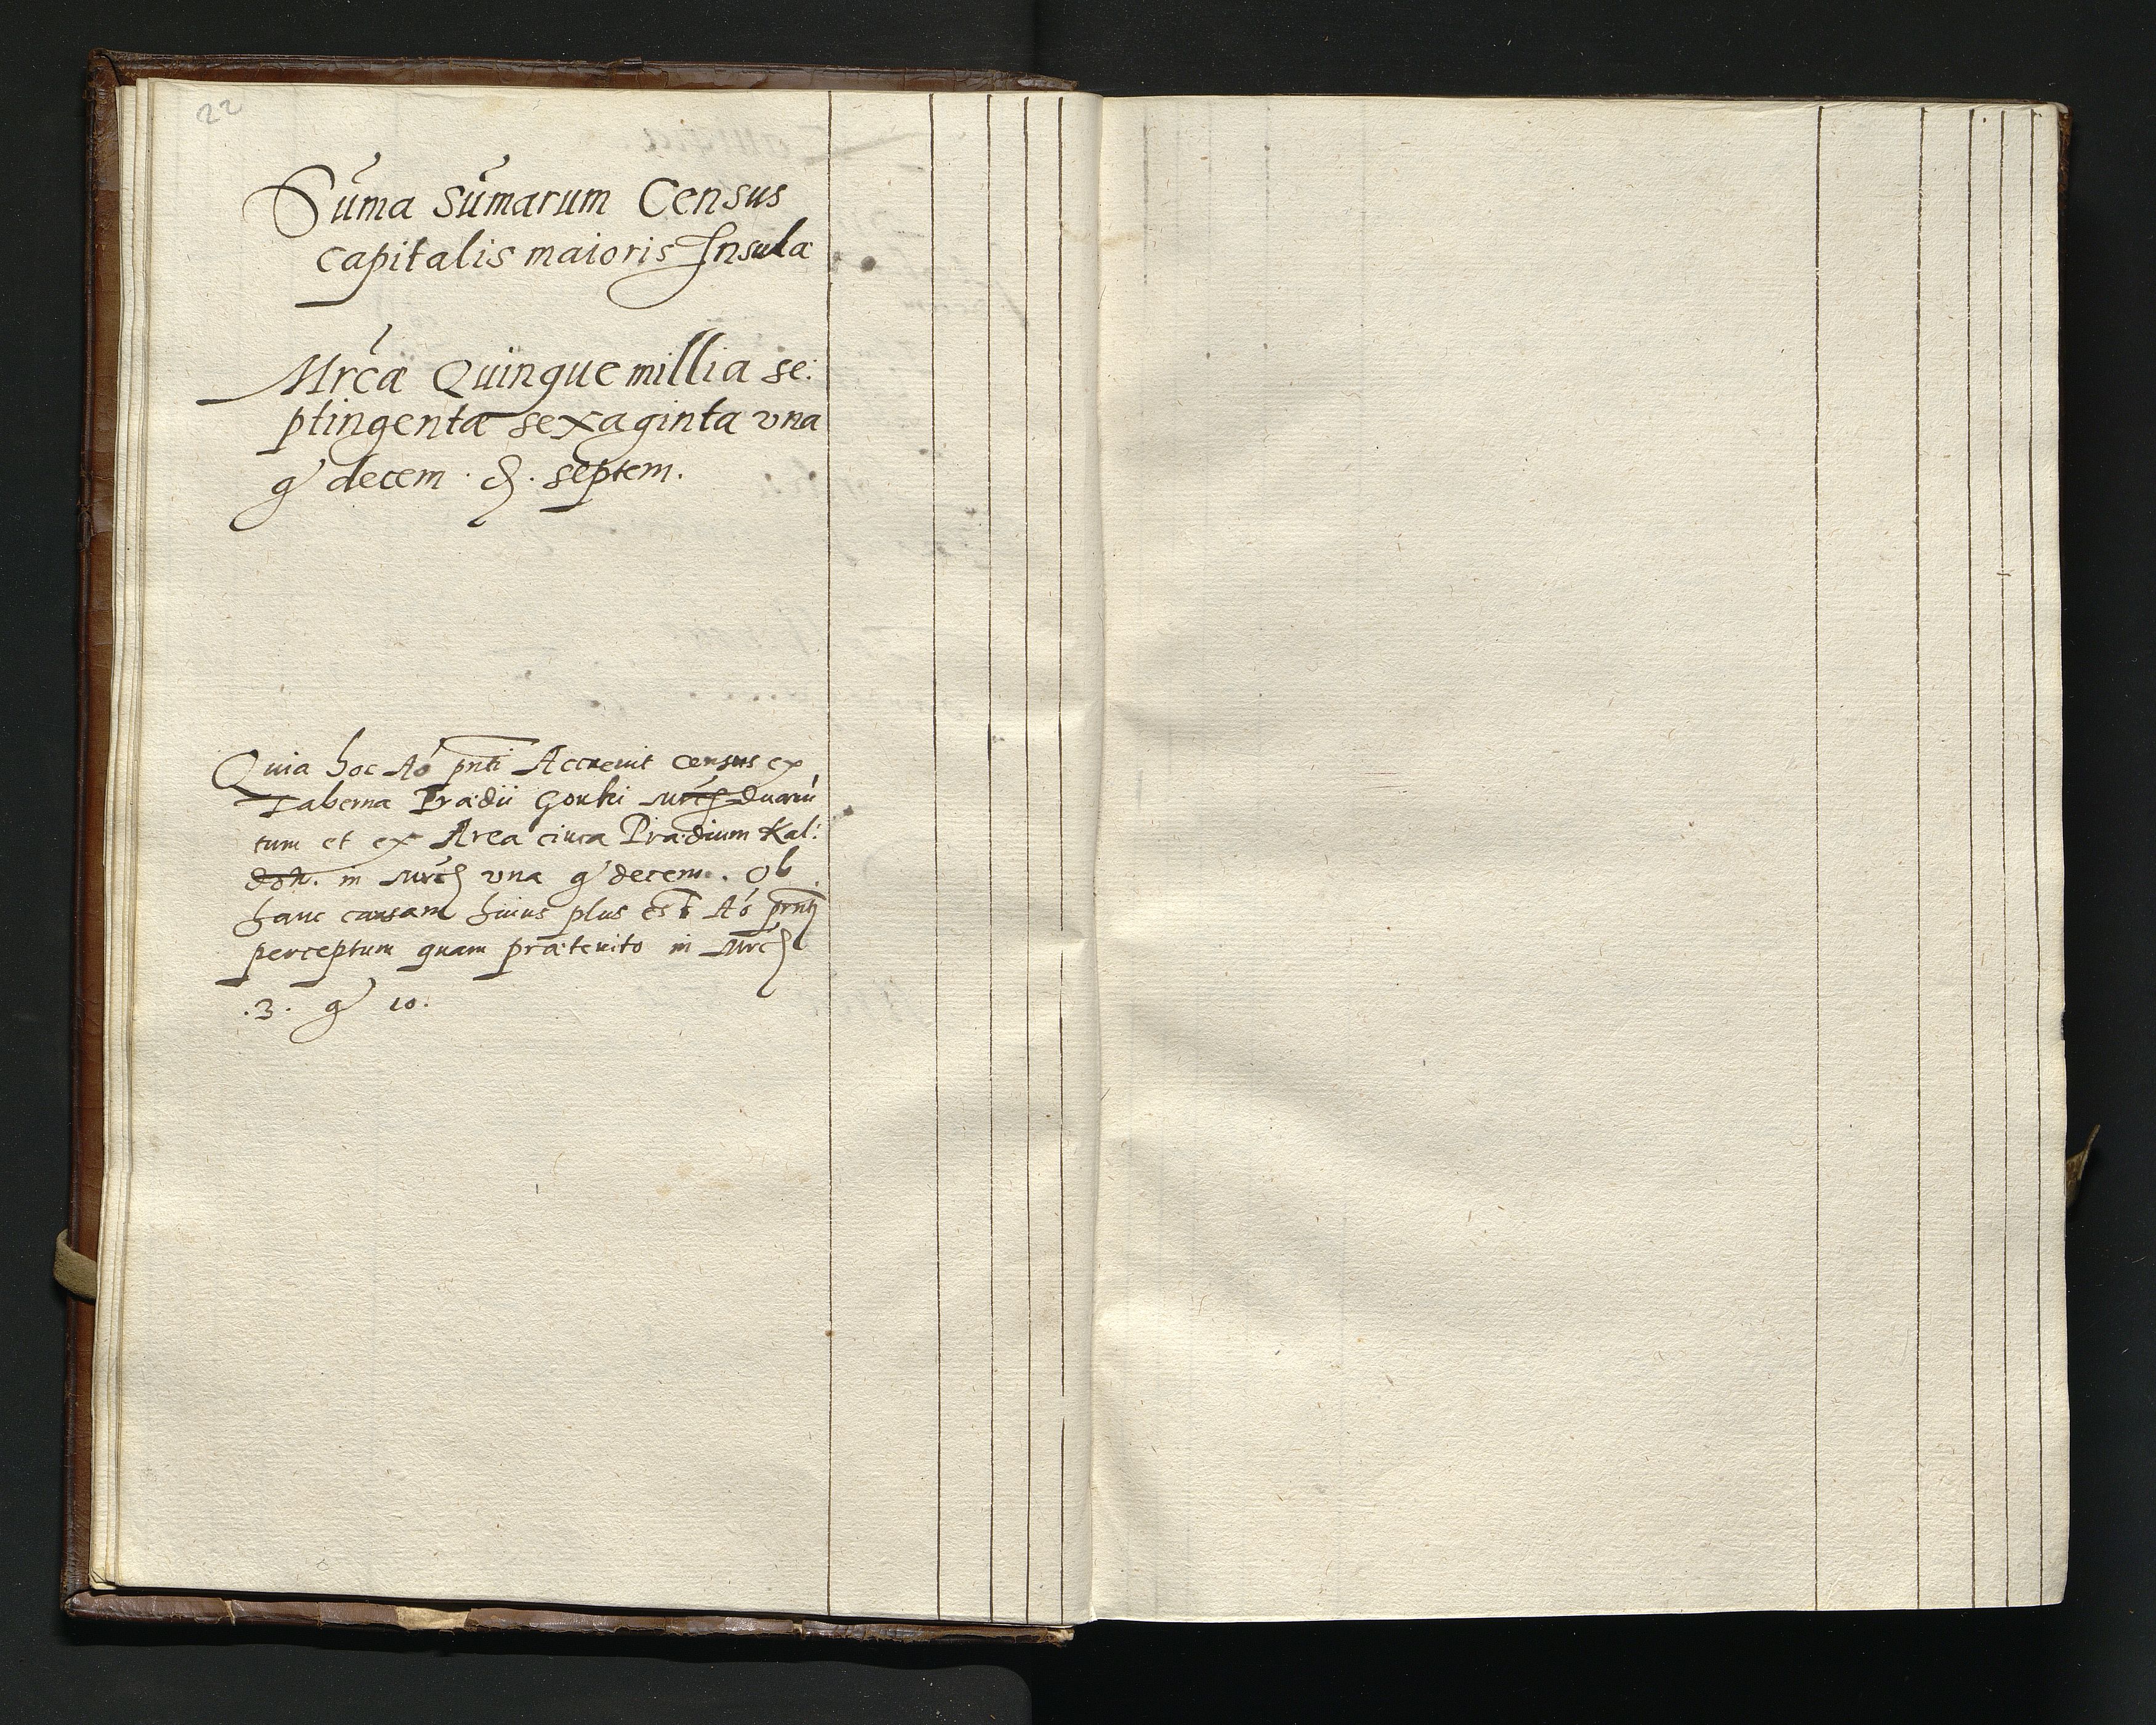 22
Sum̃a Sum̃arum Census
capitalis maioris Insulæ
Mrcæ Quinque millia se:
ptingentæ sexaginta vna
g decem . ₰ . septem.
Quia hoc Aõ pnti Accreuit census ex
Taberna Prædii Gorki mrcs duarũ
tum et ex Area circa Prædium Kal:
doh. in mrcs vna g decem. Ob
hanc causam huius plus est Aõ prnti
perceptum quam præterito in mrcs
.3. g 10.